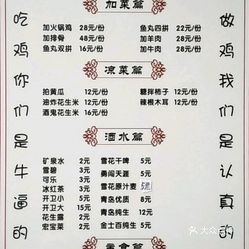 加菜篇
加火锅鸡 28元/份
鱼丸四拼 22元/份
加排骨 48元/份
加羊肉 28元/份
鱼丸双拼 16元/份
加牛肉 28元/份
凉菜篇
拍黄瓜 12元/份
糖拌柿子 12元/份
油炸花生米 12元/份
辣根木耳 12元/份
酒鬼花生米 16元/份
酒水篇
矿泉水 2元
雪花干啤 5元
雪碧 3元
勇闯天涯 5元
可乐 3元
雪花原汁麦 5元
冰红茶 3元
开卫小 5元
青岛优质 8元
开卫大 15元
青岛纯生 12元
花生露 5元
金士百纯生 5元
宏宝莱 2元
美食篇
吃鸡你们是牛逼的
做鸡我们是认真的